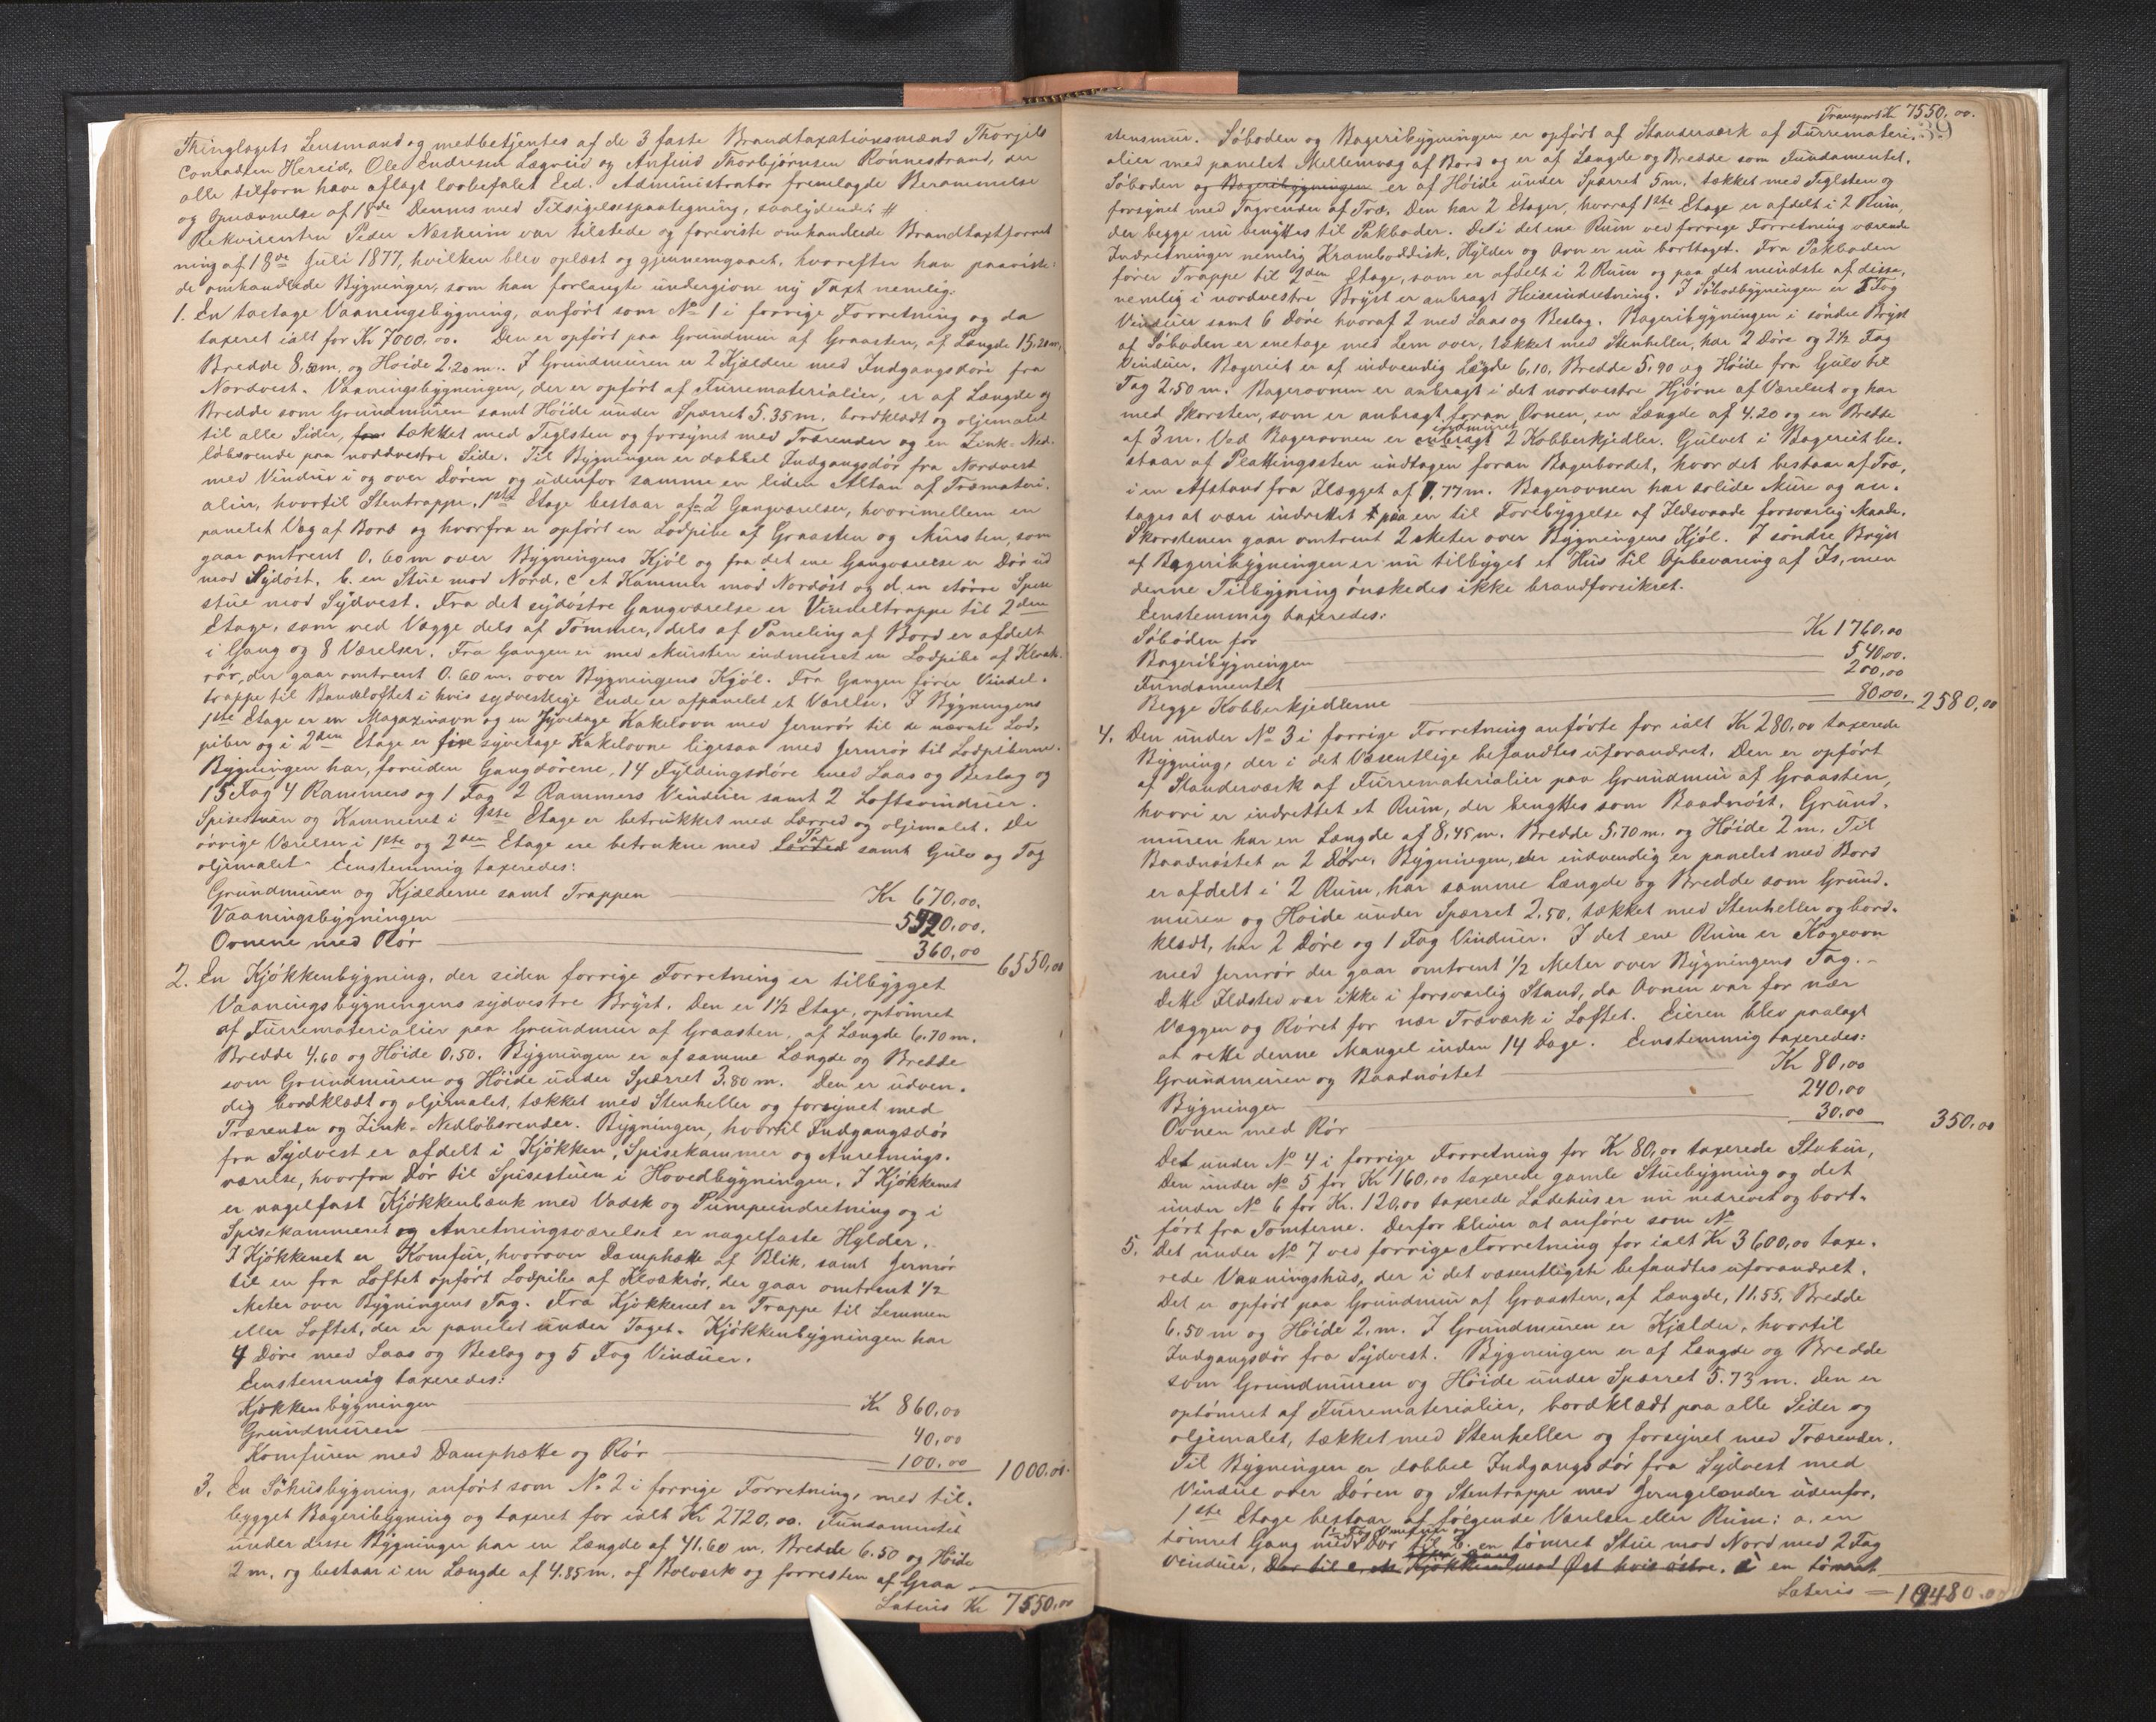 Thinglagets Lensmand og medbetjentes af de 3 faste Brandtaxationsmænd Thorgils
Conradsen Hereid, Ole Endresen Lægreid og Anfind Thorbjørnsen Rönnestrand, der
alle tilforn have aflagt lovbefalet Eed. Administrator fremlagde Berammelse
og Opnævnelse af 18de Dennes med Tilsigelsespaategning, saalydende: #
Rekvirenten Peder Næsheim var tilstede og foreviste omhandlede Brandtaxtforret
ning af 18de Juli 1877, hvilken blev oplæst og gjennemgaaet, hvorefter han paaviste
de omhandlede Bygninger, som han forlangte undergivne ny Taxt nemlig:
1. En toetage Vaaningsbygning, anført som No 1 i forrige Forretning og da
taxeret ialt for Kr 7000,00. Den er opført paa Grundmur af Graasten, af Længde 15,20 m,
Bredde 8,50 m, og Høide 2,20 m. I Grundmuren er 2 Kjældere med Indgangsdøre fra
Nordvest. Vaaningsbygningen, der er opført af Furrematerialier, er af Længde og
Bredde som Grundmuren samt Høide under Spærret 5.35 m. bordklædt og oljemalet
til alle Sider, for tækket med Teglsten og forsynet med Trærender og en Zink-Ned-
løbsrende paa nordvestre Side. Til Bygningen er dobbel Indgangsdør fra Nordvest
med Vindue i og over Døren og udenfor samme en liden Altan af Træmateri-
alier, hvortil Stentrappe. 1ste Etage bestaar af a 2 Gangværelser, hvorimellem en
panelet Væg af Bord og hvorfra er opført en Lodpibe af Graasten og Mursten, som
gaar omtrent 0.60 m over Bygningens Kjöl og fra det ene Gangværelse er Dør ud
mod Sydøst, b. en Stue mod Nord, c et Kammer mod Nordøst og d. en større Spise
stue mod Sydvest. Fra det sydøstre Gangværelse er Vindeltrappe til 2den
Etage, som ved Vægge dels af Tømmer, dels af Paneling af Bord er afdelt
i Gang og 8 Værelser. Fra Gangen er med Mursten indmuret en Lodpibe af Kloak-
rör, der gaar omtrent 0.60 m. over Bygningens Kjöl. Fra Gangen fører Vindel-
trappe til Bandeloftet i hvis sydvestlige Ende er afpanelet et Værelse. I Bygningens
1ste Etage er en Magazinovn og en tyvetage Kakelovn med Jernrör til de nævnte Lod-
piber og i 2den Etage er fire syvetage Kakelovne ligesaa med Jernrör til Lodpiberne.
Bygningen har, foruden Gangdørene, 14 Fyldingsdøre med Laas og Beslag og
15 Fag 4 Rammers og 1 Fag 2 Rammers Vinduer samt 2 Loftsvinduer.
Spisestuen og Kammeret i 1ste Etage er betrukket med Lærred og oljemalet. De
øvrige Værelser i 1ste og 2den Etage ere betrukne med Lærred Pap samt Gulv og Tag
oljemalet. Eenstemmig taxeredes:
Grundmuren og Kjælderne samt Trappen Kr 670,00.
Vaaningsbygningen 5520,00.
Ovnene med Rör 360,00 6550,00
2. En Kjökkenbygning, der siden forrige Forretning er tilbygget
Vaaningsbygningens sydvestre Bryst. Den er 1½ Etage, optømret
af Furrematerialier paa Grundmur af Graasten, af Længde 6.70 m.
Bredde 4.60 og Høide 0.50. Bygningen er af samme Længde og Bredde
som Grundmuren og Höide under Spærret 3.80 m. Den er udven-
dig bordklædt og oljemalet, tækket med Stenheller og forsynet med
Trærender og Zink-Nedløbsrender. Bygningen, hvortil Indgangsdör
fra Sydvest er afdelt i Kjökken, Spisekammer og Anretnings-
værelse, hvorfra Dör til Spisestuen i Hovedbygningen. I Kjökkenet
er nagelfast Kjökkenbænk med Vadsk og Pumpeindretning og i
Spisekammeret og Anretningsværelset er nagelfaste Hylder.
I Kjökkenet er Komfur, hvorover Damphætte af Blik, samt Jernrör
til en fra Loftet opført Lodpibe af Kloakrör, der gaar omtrent ½
Meter over Bygningens Tag. Fra Kjökkenet er Trappe til Lemmen
eller Loftet, der er panelet under Taget. Kjökkenbygningen har
4 Döre med Laas og Beslag og 5 Fag Vinduer.
Eenstemmig taxeredes:
Kjökkenbygningen Kr 860,00
Grundmuren 40,00
Komfuren med Damphætte og Rör 100,00 1000,00.
3. En Söhusbygning, anført som No 2 i forrige Forretning, med til-
bygget Bageribygning og taxeret for ialt Kr 2720,00. Fundamentet
under disse Bygninger har en Længde af 41.60 m. Bredde 6.50 og Höide
2 m. og bestaar i en Længde af 4.85 m. af Bolværk og forresten af Graa
Lateris Kr 7550,00
Transport Kr 7550,00.
39
stensmur. Söboden og Bageribygningen er opfört af Standerværk af Furremateri-
alier med panelet Mellemvæg af Bord og er af Længde og Bredde som Fundamentet.
Söboden og Bageribygningen er af Höide under Spærret 5 m. tækket med Teglsten og
forsynet med Tagrender af Træ. Den har 2 Etager, hvoraf 1ste Etage er afdelt i 2 Rum,
der begge nu benyttes til Pakboder. De i det ene Rum ved forrige Forretning værende
Indretninger nemlig Kramboddisk, Hylder og Ovn er nu borttaget. Fra Pakboden
fører Trappe til 2den Etage, som er afdelt i 2 Rum og paa det mindste af disse,
nemlig i nordvestre Bryst er anbragt Heiseindretning. I Söbodbygningen er 5 Fag
Vinduer samt 6 Döre hvoraf 2 med Laas og Beslag. Bageribygningen i söndre Bryst
af Söboden er enetage med Lem over, tækket med Stenheller, har 2 Döre og 2½ Fag
Vinduer. Bageriet er af indvendig Længde 6.10, Bredde 5.90 og Höide fra Gulv til
Tag 2.50 m. Bagerovnen er anbragt i det nordvestre Hjörne af Værelset og har
med Skorsten, som er anbragt foran Ovnen, en Længde af 4.20 og en Bredde
af 3 m. Ved Bagerovnen er anbragt indmuret 2 Kobberkjedler. Gulvet i Bageriet be-
staar af Plattingssten undtagen foran Bagerbordet, hvor det bestaar af Træ,
i en Afstand fra Ilægget af 1.77 m. Bagerovnen har solide Mure og an-
tages at være indrettet paa en til Forebyggelse af Ildsvaade forsvarlig Maade.
Skorstenen gaar omtrent 2 Meter over Bygningens Kjöl. I söndre Bryst
af Bageribygningen er nu tilbygget et Hus til Opbevaring af Is, men
denne Tilbygning önskedes ikke brandforsikret.
Eenstemmig taxeredes:
Söboden for Kr 1760,00
Bageribygningen 540,00.
Fundamentet 200,00
Begge Kobberkjedlerne 80,00. 2580,00
4. Den under No 3 i forrige Forretning anførte for ialt Kr 280,00 taxerede
Bygning, der i det Væsentlige befandtes uforandret. Den er opfört
af Standerværk af Furrematerialier paa Grundmur af Graasten,
hvori er indrettet et Rum, der benyttes som Baadnöst. Grund-
muren har en Længde af 8,45 m. Bredde 5.70 m. og Höide 2 m. Til
Baadnöstet er 2 Döre. Bygningen, der indvendig er panelet med Bord
er afdelt i 2 Rum, har samme Længde og Bredde som Grund-
muren og Höide under Spærret 2.50, tækket med Stenheller og bord-
klædt, har 2 Döre og 1 Fag Vinduer. I det ene Rum er Kogeovn
med Jernrör der gaar omtrent ½ Meter over Bygningens Tag.-
Dette Ildsted var ikke i forsvarlig Stand, da Ovnen var for nær
Væggen og Röret for nær Træværk i Loftet. Eieren blev paalagt
at rette denne Mangel inden 14 Dage. Eenstemmig taxeredes:
Grundmuren og Baadnöstet Kr 80,00
Bygningen 240,00
Ovnen med Rör 30,00 350,00
Det under No 4 i forrige Forretning for Kr 80,00 taxerede Stabur,
Den under No 5 for Kr 160,00 taxerede gamle Stuebygning og det
under No 6 for Kr. 120,00 taxerede Ladehus er nu nedrevet og bort-
fört fra Tomterne. Derfor bliver at anföre som No
5. Det under No 7 ved forrige Forretning for ialt Kr 3600,00 taxe-
rede Vaaningshus, der i det væsentligste befandtes uforandret.
Det er opfört paa Grundmur af Graasten, af Længde, 11.55, Bredde
6.50 m og Höide 2. m. I Grundmuren er Kjælder, hvortil
Indgangsdör fra Sydvest. Bygningen er af Længde og Bredde
som Grundmuren og Höide under Spærret 5.73 m. Den er
optömret af Furrematerialier, bordklædt paa alle Sider og
oljemalet, tækket med Stenheller og forsynet med Trærender.
Til Bygningen er dobbel Indgangsdör fra Sydvest med
Vindue over Dören og Stentrappe med Jerngelænder udenfor.
1ste Etage bestaar af fölgende Værelser eller Rum: a. en
tömret Gang med Dör til b. en tömret Stue mod Nord med 2 Fag
Vinduer, Dör til Kjökken mod Öst hvis östre. en tömret
Lateris = 10480,00